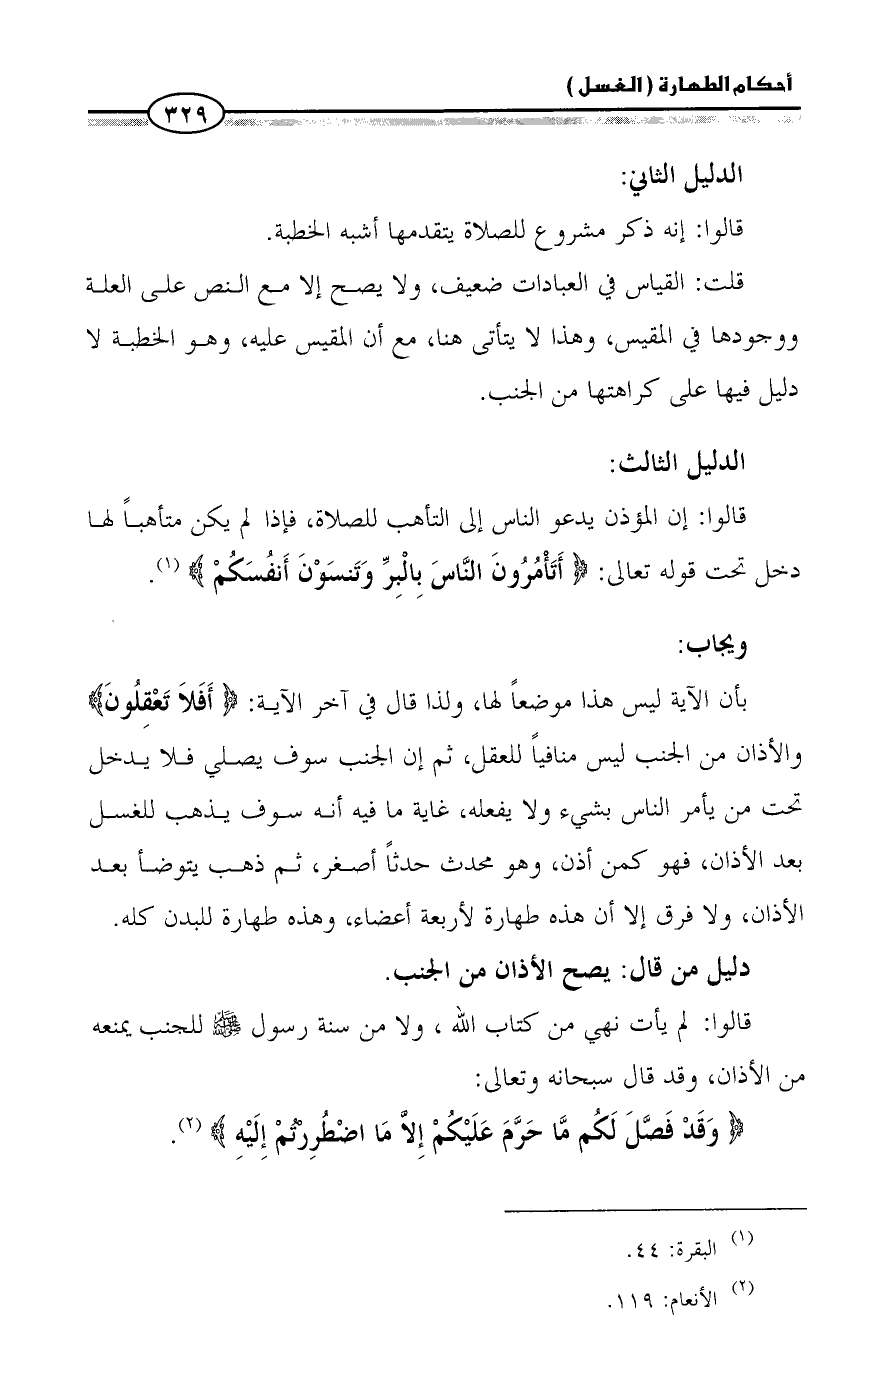 أحكام الطهارة (الغسل)
٣٢٩
الدليل الثاني:
قالوا: إنه ذكر مشروع للصلاة يتقدمها أشبه الخطبة.
قلت: القياس في العبادات ضعيف، ولا يصح إلا مع النص على العلة
ووجودها في المقيس، وهذا لا يتأتى هنا، مع أن المقيس عليه، وهو الخطبة لا
دليل فيها على كراهتها من الجنب.
الدليل الثالث:
قالوا: إن المؤذن يدعو الناس إلى التأهب للصلاة، فإذا لم يكن متأهباً لها
دخل تحت قوله تعالى: ﴿ أَتَأْمُرُونَ النَّاسَ بِالْبِرِّ وَتَنسَوْنَ أَنفُسَكُمْ ﴾ (١).
ويجاب:
بأن الآية ليس هذا موضعاً لها، ولذا قال في آخر الآية: ﴿ أَفَلاَ تَعْقِلُونَ﴾
والأذان من الجنب ليس منافياً للعقل، ثم إن الجنب سوف يصلي فلا يدخل
تحت من يأمر الناس بشيء ولا يفعله، غاية ما فيه أنه سوف يذهب للغسل
بعد الأذان، فهو كمن أذن، وهو محدث حدثاً أصغر، ثم ذهب يتوضأ بعد
الأذان، ولا فرق إلا أن هذه طهارة لأربعة أعضاء، وهذه طهارة للبدن كله.
دليل من قال: يصح الأذان من الجنب.
قالوا: لم يأت نهي من كتاب الله ، ولا من سنة رسول ﷺ للجنب يمنعه
من الأذان، وقد قال سبحانه وتعالى:
﴿ وَقَدْ فَصَّلَ لَكُم مَّا حَرَّمَ عَلَيْكُمْ إِلاَّ مَا اضْطُرِرْتُمْ إِلَيْهِ ﴾ (٢).
(١) البقرة: ٤٤.
(٢) الأنعام: ١١٩.